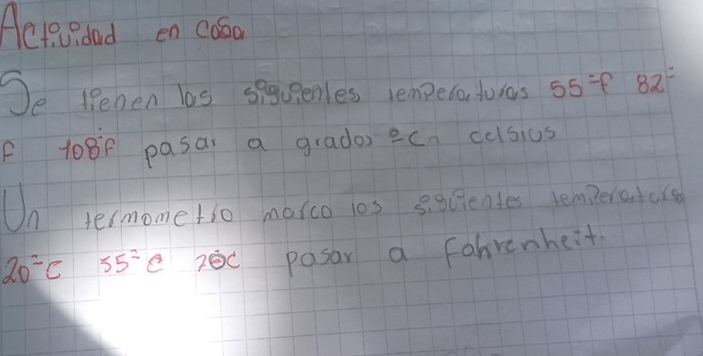 Actividad en casa
Se tienen las siguientes temperaturas 55º f 82º
F 108ºF pasar a grados ºC celsius
Un termometro marco los siguientes temperatura
20ºC 55ºC 70C pasar a Fahrenheit.